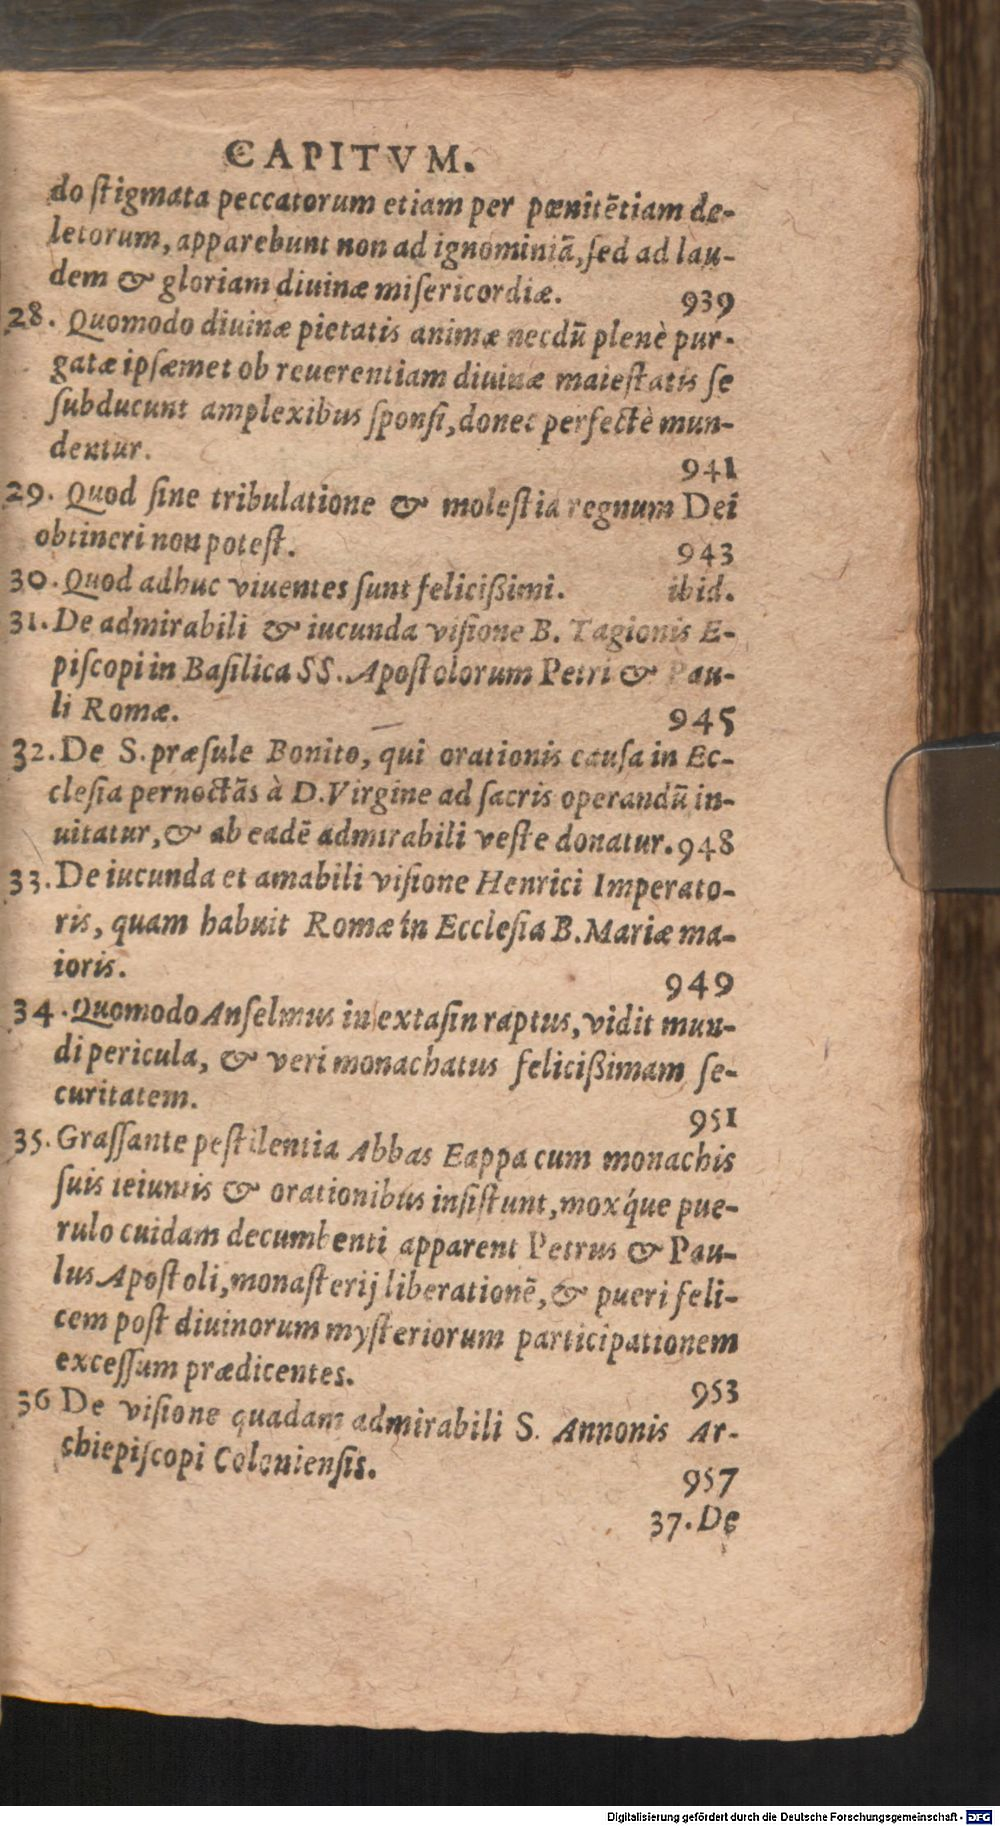 CAPITVM.
do ſtigmata peccatorum etiam per pœnitētiam de-
letorum, apparebunt non ad ignominiā, ſed ad lau-
dem & gloriam diuinæ miſericordiæ. 939
28. Quomodo diuinæ pietatis animæ necdū plenè pur-
gatæ ipſæmet ob reuerentiam diuinæ maieſtatis ſe
ſubducunt amplexibus ſponſi, donec perfectè mun-
dentur. 941
29. Quod ſine tribulatione & moleſtia regnum Dei
obtineri non poteſt. 943
30. Quod adhuc viuentes ſunt feliciſſimi. ibid.
31. De admirabili & iucunda viſione B. Tagionis E-
piſcopi in Baſilica SS. Apoſtolorum Petri & Pau-
li Romæ. 945
32. De S. præſule Bonito, qui orationis cauſa in Ec-
cleſia pernoctās à D. Virgine ad ſacris operandū in-
uitatur, & ab eadē admirabili veſte donatur. 948
33. De iucunda et amabili viſione Henrici Imperato-
ris, quam habuit Romæ in Eccleſia B. Mariæ ma-
ioris. 949
34. Quomodo Anſelmus in extaſin raptus, vidit mun-
di pericula, & veri monachatus feliciſſimam ſe-
curitatem. 951
35. Graſſante peſtilentia Abbas Eappa cum monachis
ſuis ieiuniis & orationibus inſiſtunt, moxq́ue pue-
rulo cuidam decumbenti apparent Petrus & Pau-
lus Apoſtoli, monaſterij liberationē, & pueri feli-
cem poſt diuinorum myſteriorum participationem
exceſſum prædicentes. 953
36 De viſione quadam admirabili S. Annonis Ar-
chiepiſcopi Colonienſis. 957
37. De
Digitalisierung gefördert durch die Deutsche Forschungsgemeinschaft - DFG